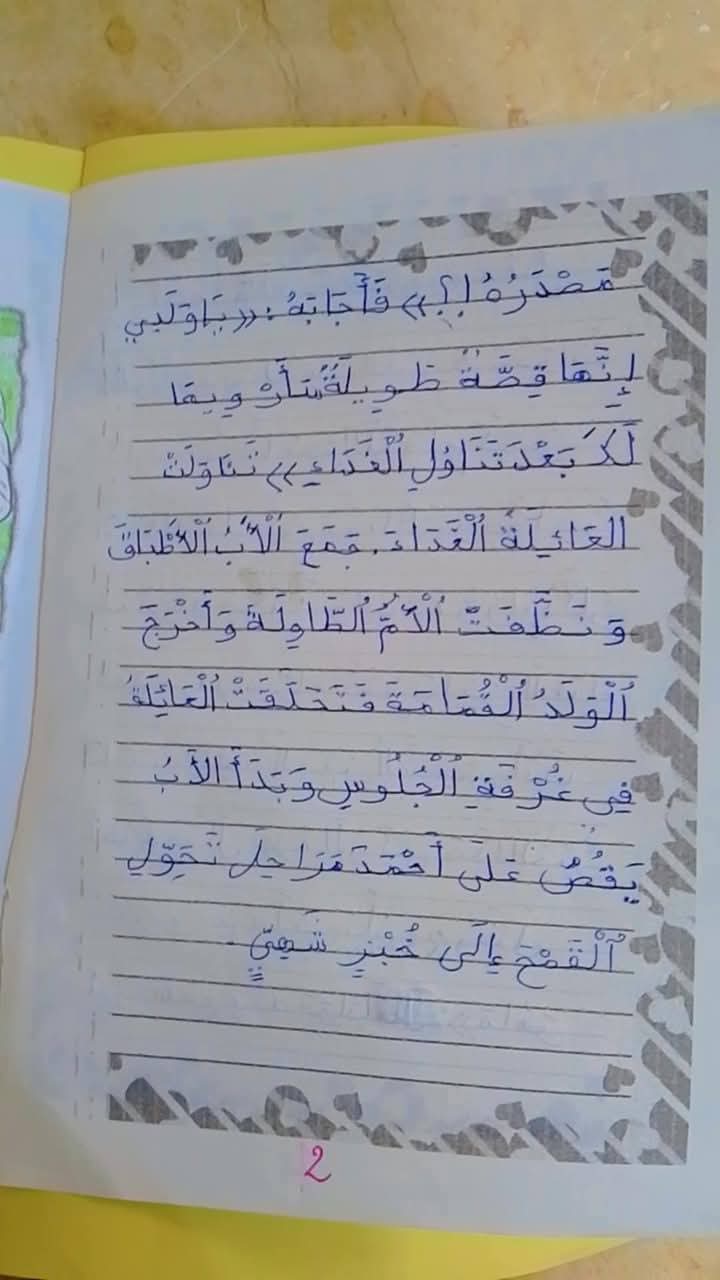 مَصْدَرُهُ!؟» فَأَجَابَهُ: «يَا وَلَدِي
إِنَّهَا قِصَّةٌ طَوِيلَةٌ سَأَرْوِيهَا
لَكَ بَعْدَ تَنَاوُلِ الْغَدَاءِ» تَنَاوَلَتْ
العَائِلَةُ الْغَدَاءَ. جَمَعَ الْأَبُ الْأَطْبَاقَ
وَنَظَّفَتْ الْأُمُّ الطَّاوِلَةَ وَأَخْرَجَ
الْوَلَدُ الْقُمَامَةَ فَتَحَلَقَتْ الْعَائِلَةُ
فِي غُرْفَةِ الْجُلُوسِ وَبَدَأَ الأَبُ
يَقُصُّ عَلَى أَحْمَدَ مَرَاحِلَ تَحَوِّلِ
الْقَمْحَ إِلَى خُبْزٍ شَهِيٍّ.
2